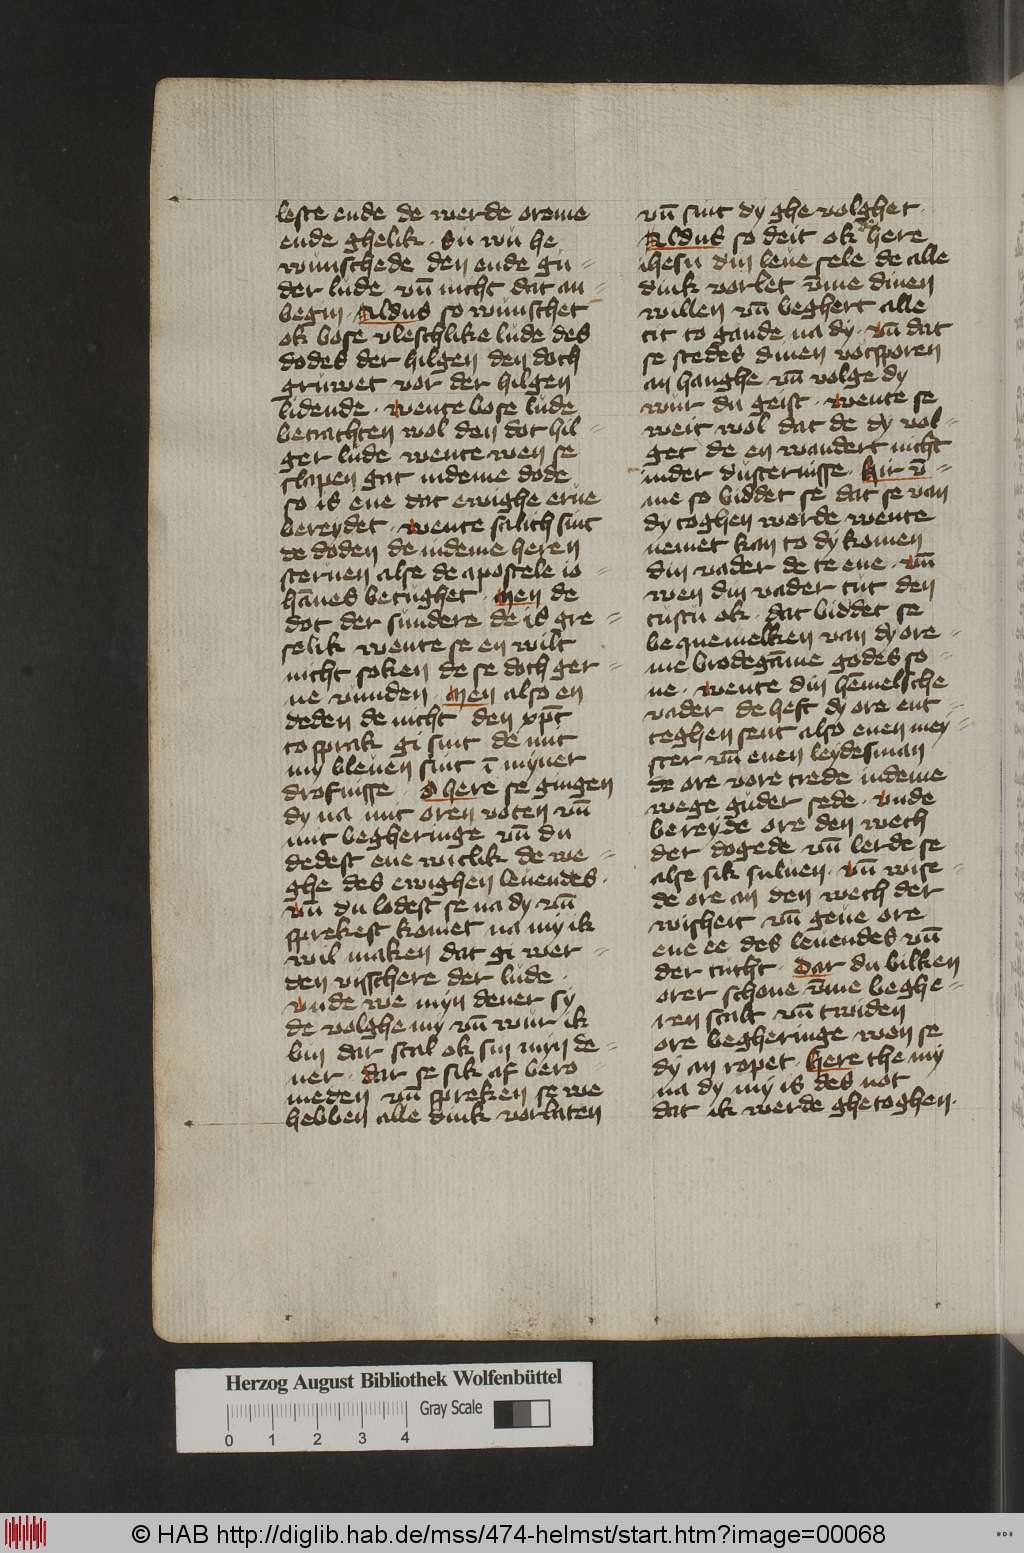 leste ende de werde oreme
ende ghelik · Su wu he
wunschede den ende gu⸗
der lude vn̄ nicht dat an⸗
begin · Aldus so wunschet
ok bose vleschlike lude des
dodes der hilgen den doch
gruwet vor der hilgen
lidende · wente bose lude
betrachten wol den dot hil⸗
ger lude wente wen se
slapen gat indeme dode
so is ene dat ewighe erue
bereydet · wente salich sint
de doden de indeme heren
steruen alse de apostele io⸗
hān̄es betughet · Men de
dot der sundere de is gre⸗
selik wente se en wilt
nicht soken de se doch ger⸗
ne vunden · Men also en
deden de nicht den xp̄c
to sprak gi sint de mit
my bleuen sint ī myner
drofnisse · O here se gingen
dy na mit oren voten vn̄
mit begheringe vn̄ du
dedest ene witlik de we⸗
ghe des ewighen leuendes ·
vn̄ du lodest se na dy vn̄
sprekest komet na my ik
wil maken dat gi wer⸗
den visschere der lude ·
vnde we myn dener sy
de volghe my vn̄ wur ik
bin dar scal ok sin myn de⸗
ner · dar se sik af vero⸗
meden vn̄ spreken se we
hebben alle dink vorlaten
vn̄ sint dy ghe volghet
Aldus so deit ok de here
ihesu din leue sele de alle
dink vorlet v̄me dinen
willen vn̄ beghert alle
tit to gande na dy · vn̄ dat
se stedes dinen votsporen
an hanghe vn̄ volge dy
wur du geist · wente se
weit wol dat de dy vol⸗
get de en wandert nicht
inder dusternisse · Hir v̄⸗
me so biddet se dat se van
dy toghen werde wente
nemet kan to dy komen
din vader de te ene · vn̄
wen din vader tut den
tustu ok · dat biddet se
bequemelken van dy ore⸗
me brodegāme godes so⸗
ne · wente din hēmelsche
vader de heft dy ore ent⸗
teghen sent also enen mey⸗
ster vn̄ enen leydesman
de ore vore trede indeme
wege guder sede · vnde
bereyde ore den wech
der dogede vn̄ lerde se
alse sik suluen · vn̄ wise⸗
de ore an den wech der
wisheit vn̄ geue ore
ene ee des leuendes vn̄
der tucht · Dar du bilken
orer schone v̄me beghe⸗
ren scalt vn̄ twiden
ore begheringe wen se
dy an ropet · Here the my
na dy my is des not
dat ik werde ghetoghen ·
Herzog August Bibliothek Wolfenbüttel
Gray Scale
0 1 2 3 4
© HAB http://diglib.hab.de/mss/474-helmst/start.htm?image=00068
WDB